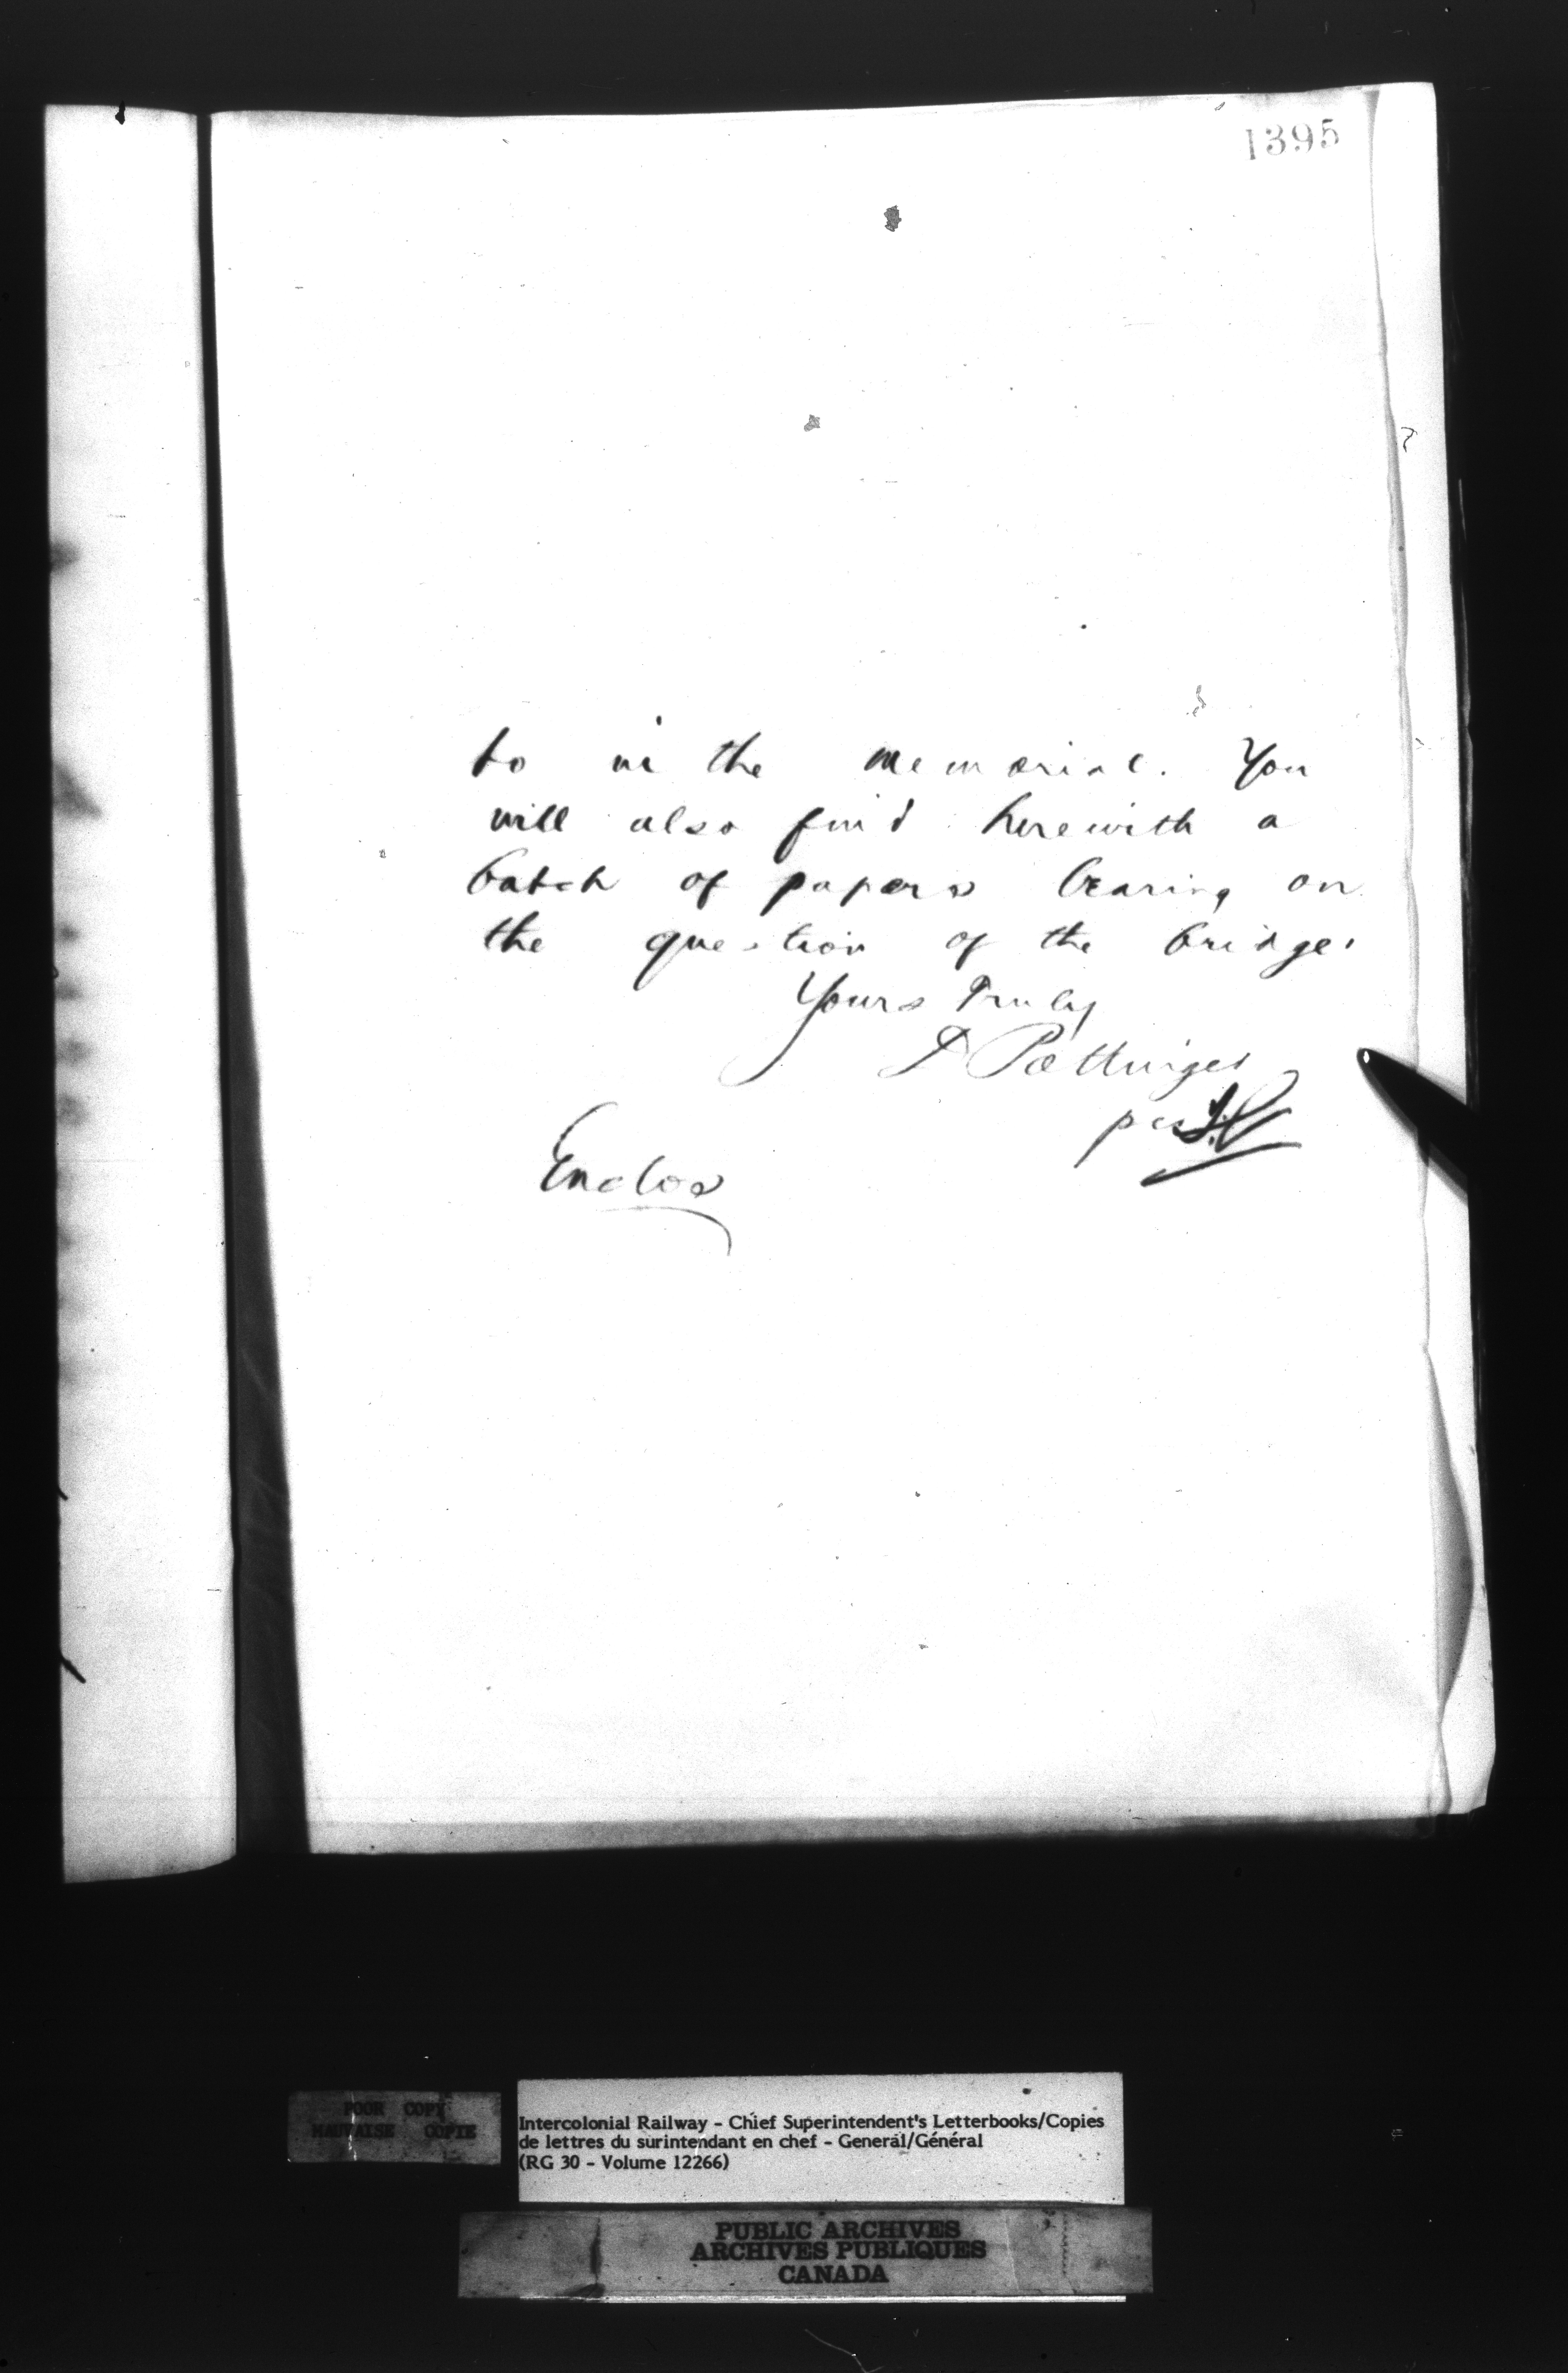 1395
to in the memorial. You
will also find herewith a
batch of papers bearing on
the question of the bridge.
Yours Truly
D Pottinger
per
Enclos
POOR COPY
MAUVAISE COPIE
Intercolonial Railway - Chief Superintendent's Letterbooks/Copies
de lettres du surintendant en chef - General/Général
(RG 30 - Volume 12266)
PUBLIC ARCHIVES
ARCHIVES PUBLIQUES
CANADA